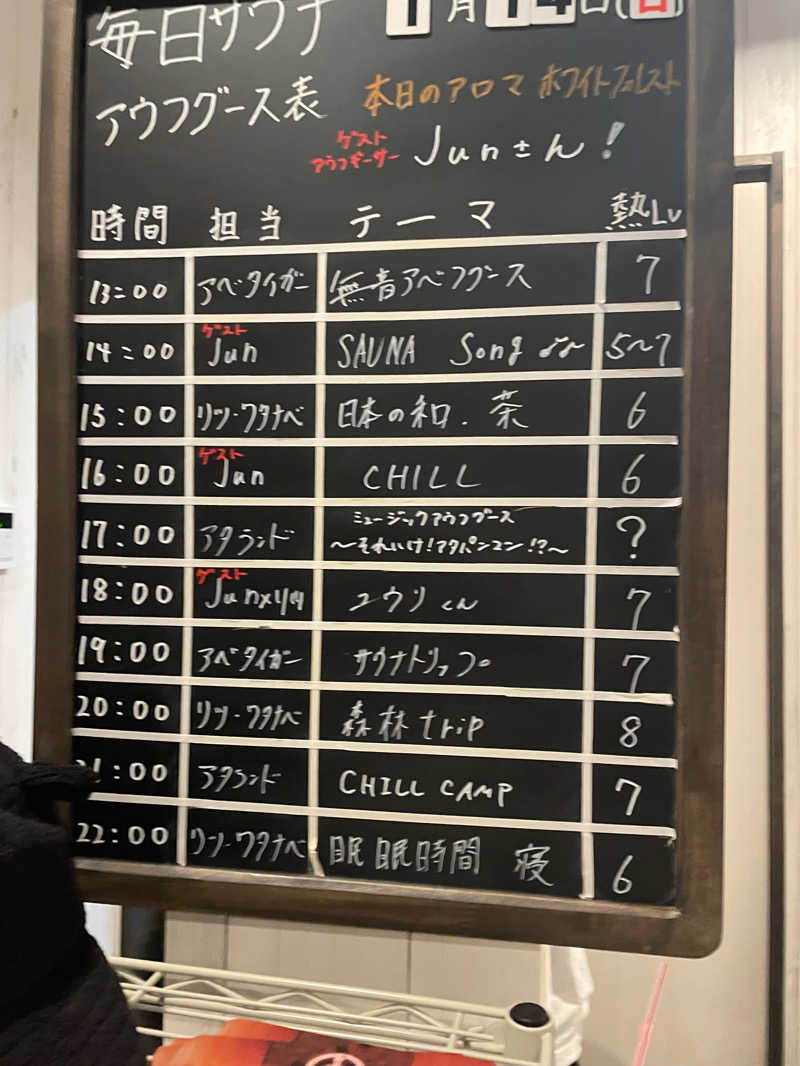 毎日サウナ 1月14日(日)
アウフグース表 本日のアロマ ホワイトフォレスト
ゲスト
アウフギーサー Junさん!
時間 担当 テーマ 熱Lv
13:00 アベタイガー 無音アベフグース 7
14:00 ゲスト Jun SAUNA Song ♪♪ 5~7
15:00 リツ・ワタナベ 日本の和・茶 6
16:00 ゲスト Jun CHILL 6
17:00 アタランド ミュージックアウフグース ?
~それいけ!アタパンマン!?~
18:00 ゲスト Jun×リツ ユウリくん 7
19:00 アベタイガー サウナトリップ 7
20:00 リツ・ワタナベ 森林trip 8
21:00 アタランド CHILL CAMP 7
22:00 リツ・ワタナベ 眠眠時間 寝 6